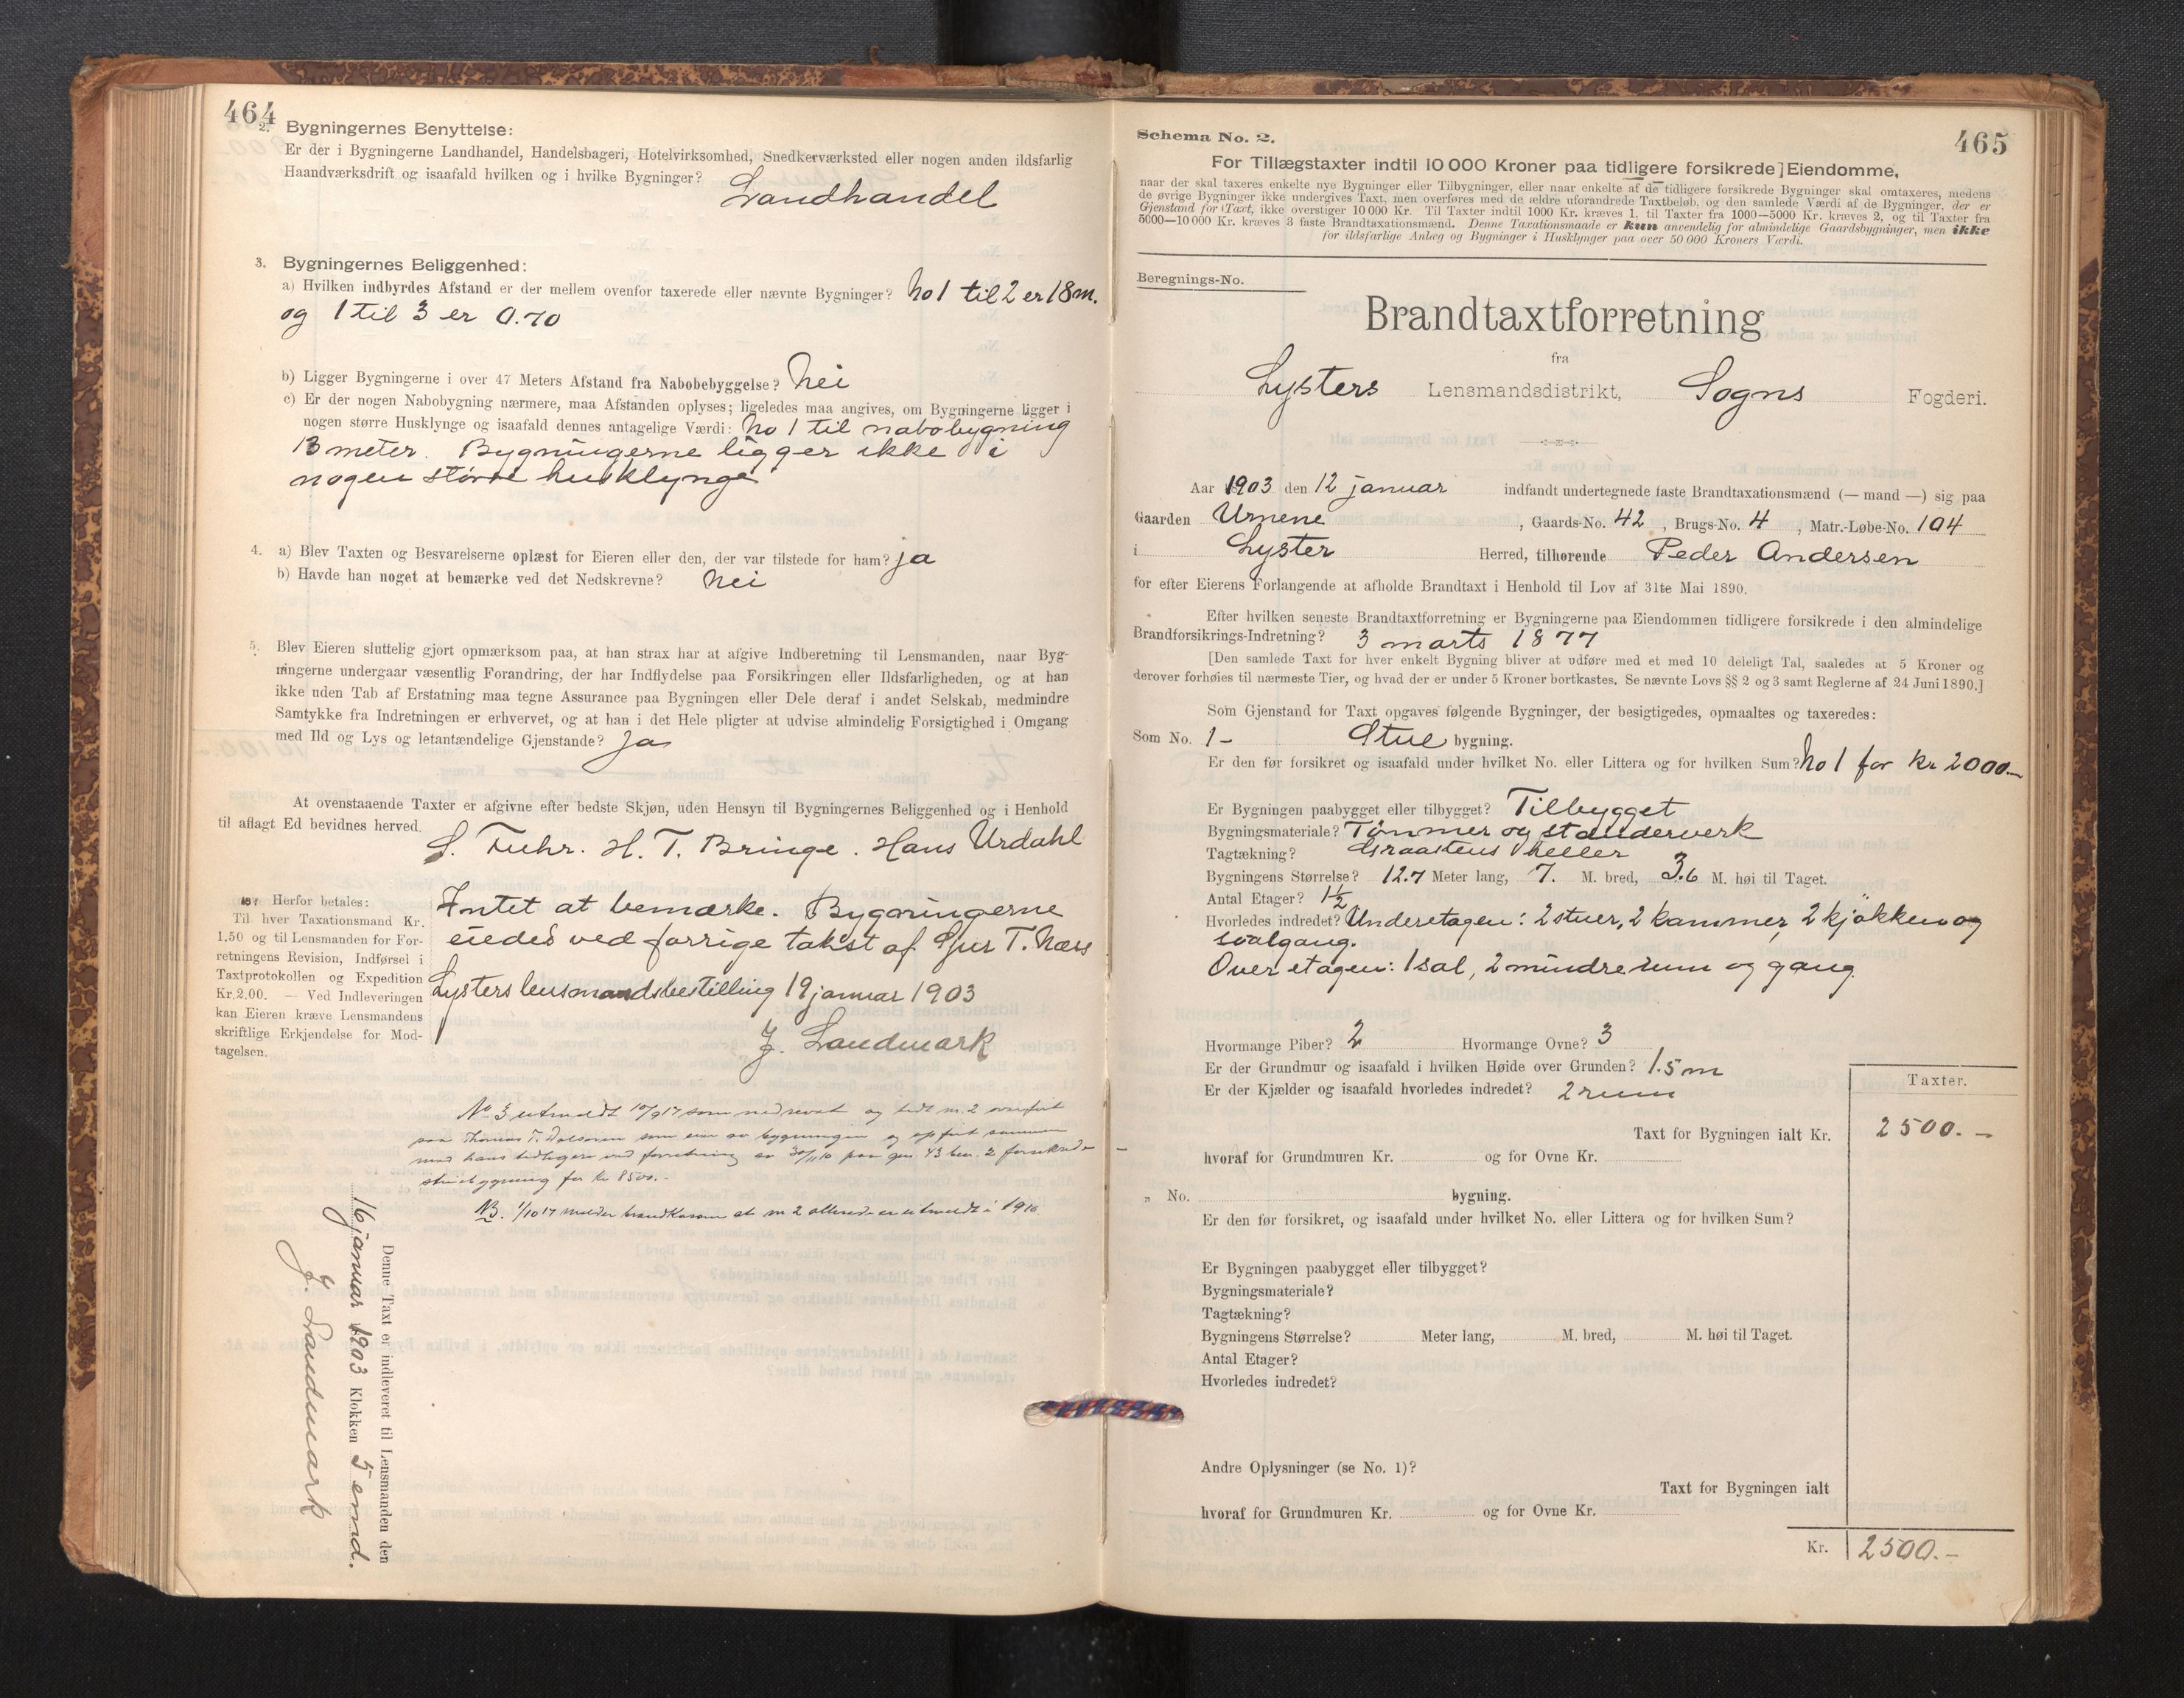 464
2. Bygningernes Benyttelse:
Er der i Bygningerne Landhandel, Handelsbageri, Hotelvirksomhed, Snedkerværksted eller nogen anden ildsfarlig
Haandværksdrift og isaafald hvilken og i hvilke Bygninger?
Landhandel
3. Bygningernes Beliggenhed:
a) Hvilken indbyrdes Afstand er der mellem ovenfor taxerede eller nævnte Bygninger? No 1 til 2 er 18 m.
og 1 til 3 er 0.70
b) Ligger Bygningerne i over 47 Meters Afstand fra Nabobebyggelse? Nei
c) Er der nogen Nabobygning nærmere, maa Afstanden oplyses; ligeledes maa angives, om Bygningerne ligger i
nogen større Husklynge og isaafald dennes antagelige Værdi: No 1 til nabobygning
13 meter. Bygningerne ligger ikke i
nogen större husklynge
4. a) Blev Taxten og Besvarelserne oplæst for Eieren eller den, der var tilstede for ham? ja
b) Havde han noget at bemærke ved det Nedskrevne? Nei
5. Blev Eieren sluttelig gjort opmærksom paa, at han strax har at afgive Indberetning til Lensmanden, naar Byg-
ningerne undergaar væsentlig Forandring, der har Indflydelse paa Forsikringen eller Ildsfarligheden, og at han
ikke uden Tab af Erstatning maa tegne Assurance paa Bygningen eller Dele deraf i andet Selskab, medmindre
Samtykke fra Indretningen er erhvervet, og at han i det Hele pligter at udvise almindelig Forsigtighed i Omgang
med Ild og Lys og letantændelige Gjenstande? ja
At ovenstaaende Taxter er afgivne efter bedste Skjøn, uden Hensyn til Bygningernes Beliggenhed og i Henhold
til aflagt Ed bevidnes herved.
S. Fuhr. H. T. Bringe. Hans Urdahl
Herfor betales:
Til hver Taxationsmand Kr.
1.50 og til Lensmanden for For-
retningens Revision, Indførsel i
Taxtprotokollen og Expedition
Kr. 2.00. — Ved Indleveringen
kan Eieren kræve Lensmandens
skriftlige Erkjendelse for Mod-
tagelsen.
Intet at bemærke. Bygningerne
eiedes ved forrige takst af Sjur T. Næss
Lysters lensmandsbestilling 19 januar 1903
J. Landmark
No 3 utmeldt 10/9 17 som nedrevet og
paa Thomas T. som eier av bygningen og opfört sammen
med hans tidligere ved forretning av 30/11 10 paa gnr. 43 bnr. 2 forsikrede
stuebygning for kr 8500.-
NB. 1/10 17 melder brandkassen at nr 2 allerede er utmeldt i 1910.
Denne Taxt er indleveret til Lensmanden den
16 januar 1903 Klokken 5 emd.
J. Landmark
465
Schema No. 2.
For Tillægstaxter indtil 10 000 Kroner paa tidligere forsikrede] Eiendomme,
naar der skal taxeres enkelte nye Bygninger eller Tilbygninger, eller naar enkelte af de tidligere forsikrede Bygninger skal omtaxeres, medens
de øvrige Bygninger ikke undergives Taxt, men overføres med de ældre uforandrede Taxtbeløb, og den samlede Værdi af de Bygninger, der er
Gjenstand for Taxt, ikke overstiger 10 000 Kr. Til Taxter indtil 1000 Kr. kræves 1, til Taxter fra 1000—5000 Kr. kræves 2, og til Taxter fra
5000—10 000 Kr. kræves 3 faste Brandtaxationsmænd. Denne Taxationsmaade er kun anvendelig for almindelige Gaardsbygninger, men ikke
for ildsfarlige Anlæg og Bygninger i Husklynger paa over 50 000 Kroners Værdi.
Beregnings-No.
Brandtaxtforretning
fra
Lysters Lensmandsdistrikt, Sogns Fogderi.
Aar 1903 den 12 januar indfandt undertegnede faste Brandtaxationsmænd (— mand —) sig paa
Gaarden Urnene, Gaards-No. 42, Brugs-No. 4, Matr.-Løbe-No. 104
i Lyster Herred, tilhørende Peder Andersen
for efter Eierens Forlangende at afholde Brandtaxt i Henhold til Lov af 31te Mai 1890.
Efter hvilken seneste Brandtaxtforretning er Bygningerne paa Eiendommen tidligere forsikrede i den almindelige
Brandforsikrings-Indretning? 3 marts 1877
[Den samlede Taxt for hver enkelt Bygning bliver at udføre med et med 10 deleligt Tal, saaledes at 5 Kroner og
derover forhøies til nærmeste Tier, og hvad der er under 5 Kroner bortkastes. Se nævnte Lovs §§ 2 og 3 samt Reglerne af 24 Juni 1890.]
Som Gjenstand for Taxt opgaves følgende Bygninger, der besigtigedes, opmaaltes og taxeredes:
Som No. 1- Stue bygning.
Er den før forsikret og isaafald under hvilket No. eller Littera og for hvilken Sum? No 1 for kr 2000.—
Er Bygningen paabygget eller tilbygget? Tilbygget
Bygningsmateriale? Tömmer og standerverk
Tagtækning? Graastens heller
Bygningens Størrelse? 12.7 Meter lang, 7. M. bred, 3.6 M. høi til Taget.
Antal Etager? 1½
Hvorledes indredet? Underetagen: 2 stuer, 2 kammer, 2 kjökken og
svalgang.
Over etagen: 1 sal, 2 mindre rum og gang.
Hvormange Piber? 2 Hvormange Ovne? 3
Er der Grundmur og isaafald i hvilken Høide over Grunden? 1.5 m
Er der Kjælder og isaafald hvorledes indredet? 2 rum
Taxter.
Taxt for Bygningen ialt Kr. 2500.—
hvoraf for Grundmuren Kr. og for Ovne Kr.
„ No. bygning.
Er den før forsikret, og isaafald under hvilket No. eller Littera og for hvilken Sum?
Er Bygningen paabygget eller tilbygget?
Bygningsmateriale?
Tagtækning?
Bygningens Størrelse? Meter lang, M. bred, M. høi til Taget.
Antal Etager?
Hvorledes indredet?
Andre Oplysninger (se No. 1)?
Taxt for Bygningen ialt
hvoraf for Grundmuren Kr. og for Ovne Kr.
Kr. 2500.—